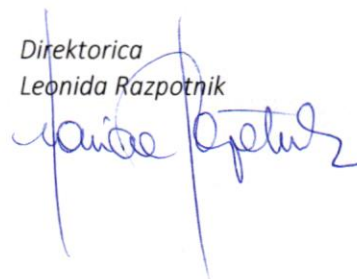 Direktorica
Leonida Razpotnik